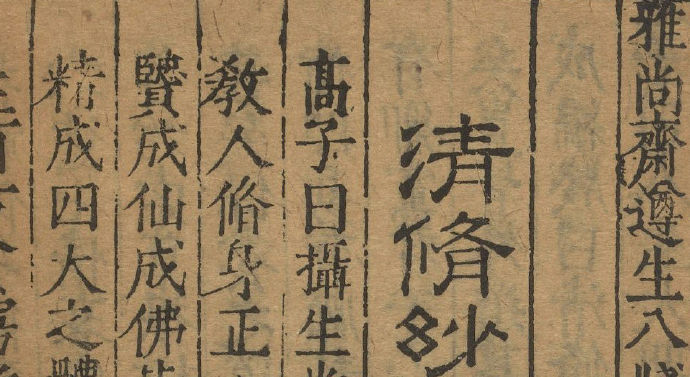 雅尚齋遵生八牋
清脩妙
高子曰攝生尚
教人脩身正
賢成仙成佛
精成四大之體